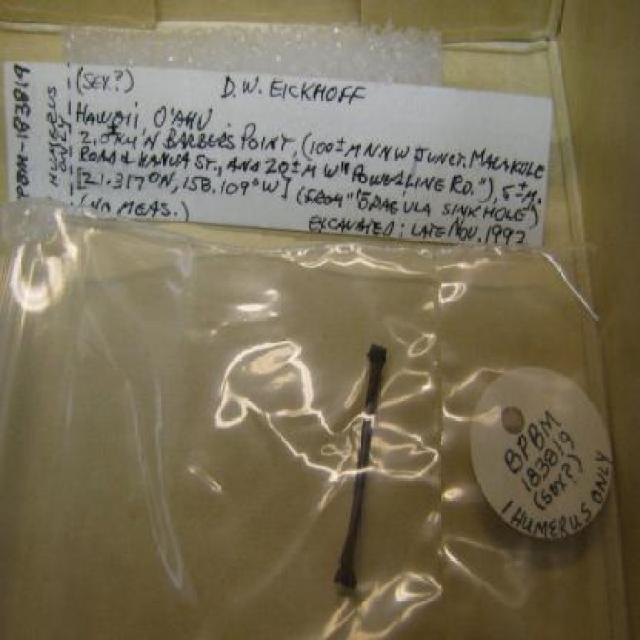 (SEX?) D.W. EICKHOFF
HAWAII, O'AHU
2.0± KM N BARBERS POINT, (100± M NNW JUNCT. MALAKOLE
ROAD & HANUA ST., AND 20± M W "POWERLINE RD."), 5± M.
[21.317°N, 158.109°W] (FROM "DRACULA SINKHOLE)
(NO MEAS.) EXCAVATED: LATE NOV. 1992
BPBM-183819
BPBM
183819
(SEX?)
1 HUMERUS ONLY